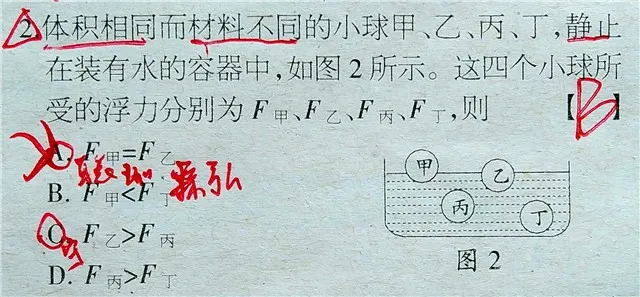 2.体积相同而材料不同的小球甲、乙、丙、丁,静止
在装有水的容器中,如图2所示。这四个小球所
受的浮力分别为F甲、F乙、F丙、F丁,则 【B】
A. F甲=F乙
B. F甲<F丁
C. F乙>F丙
D. F丙>F丁
甲
乙
丙
丁
图2